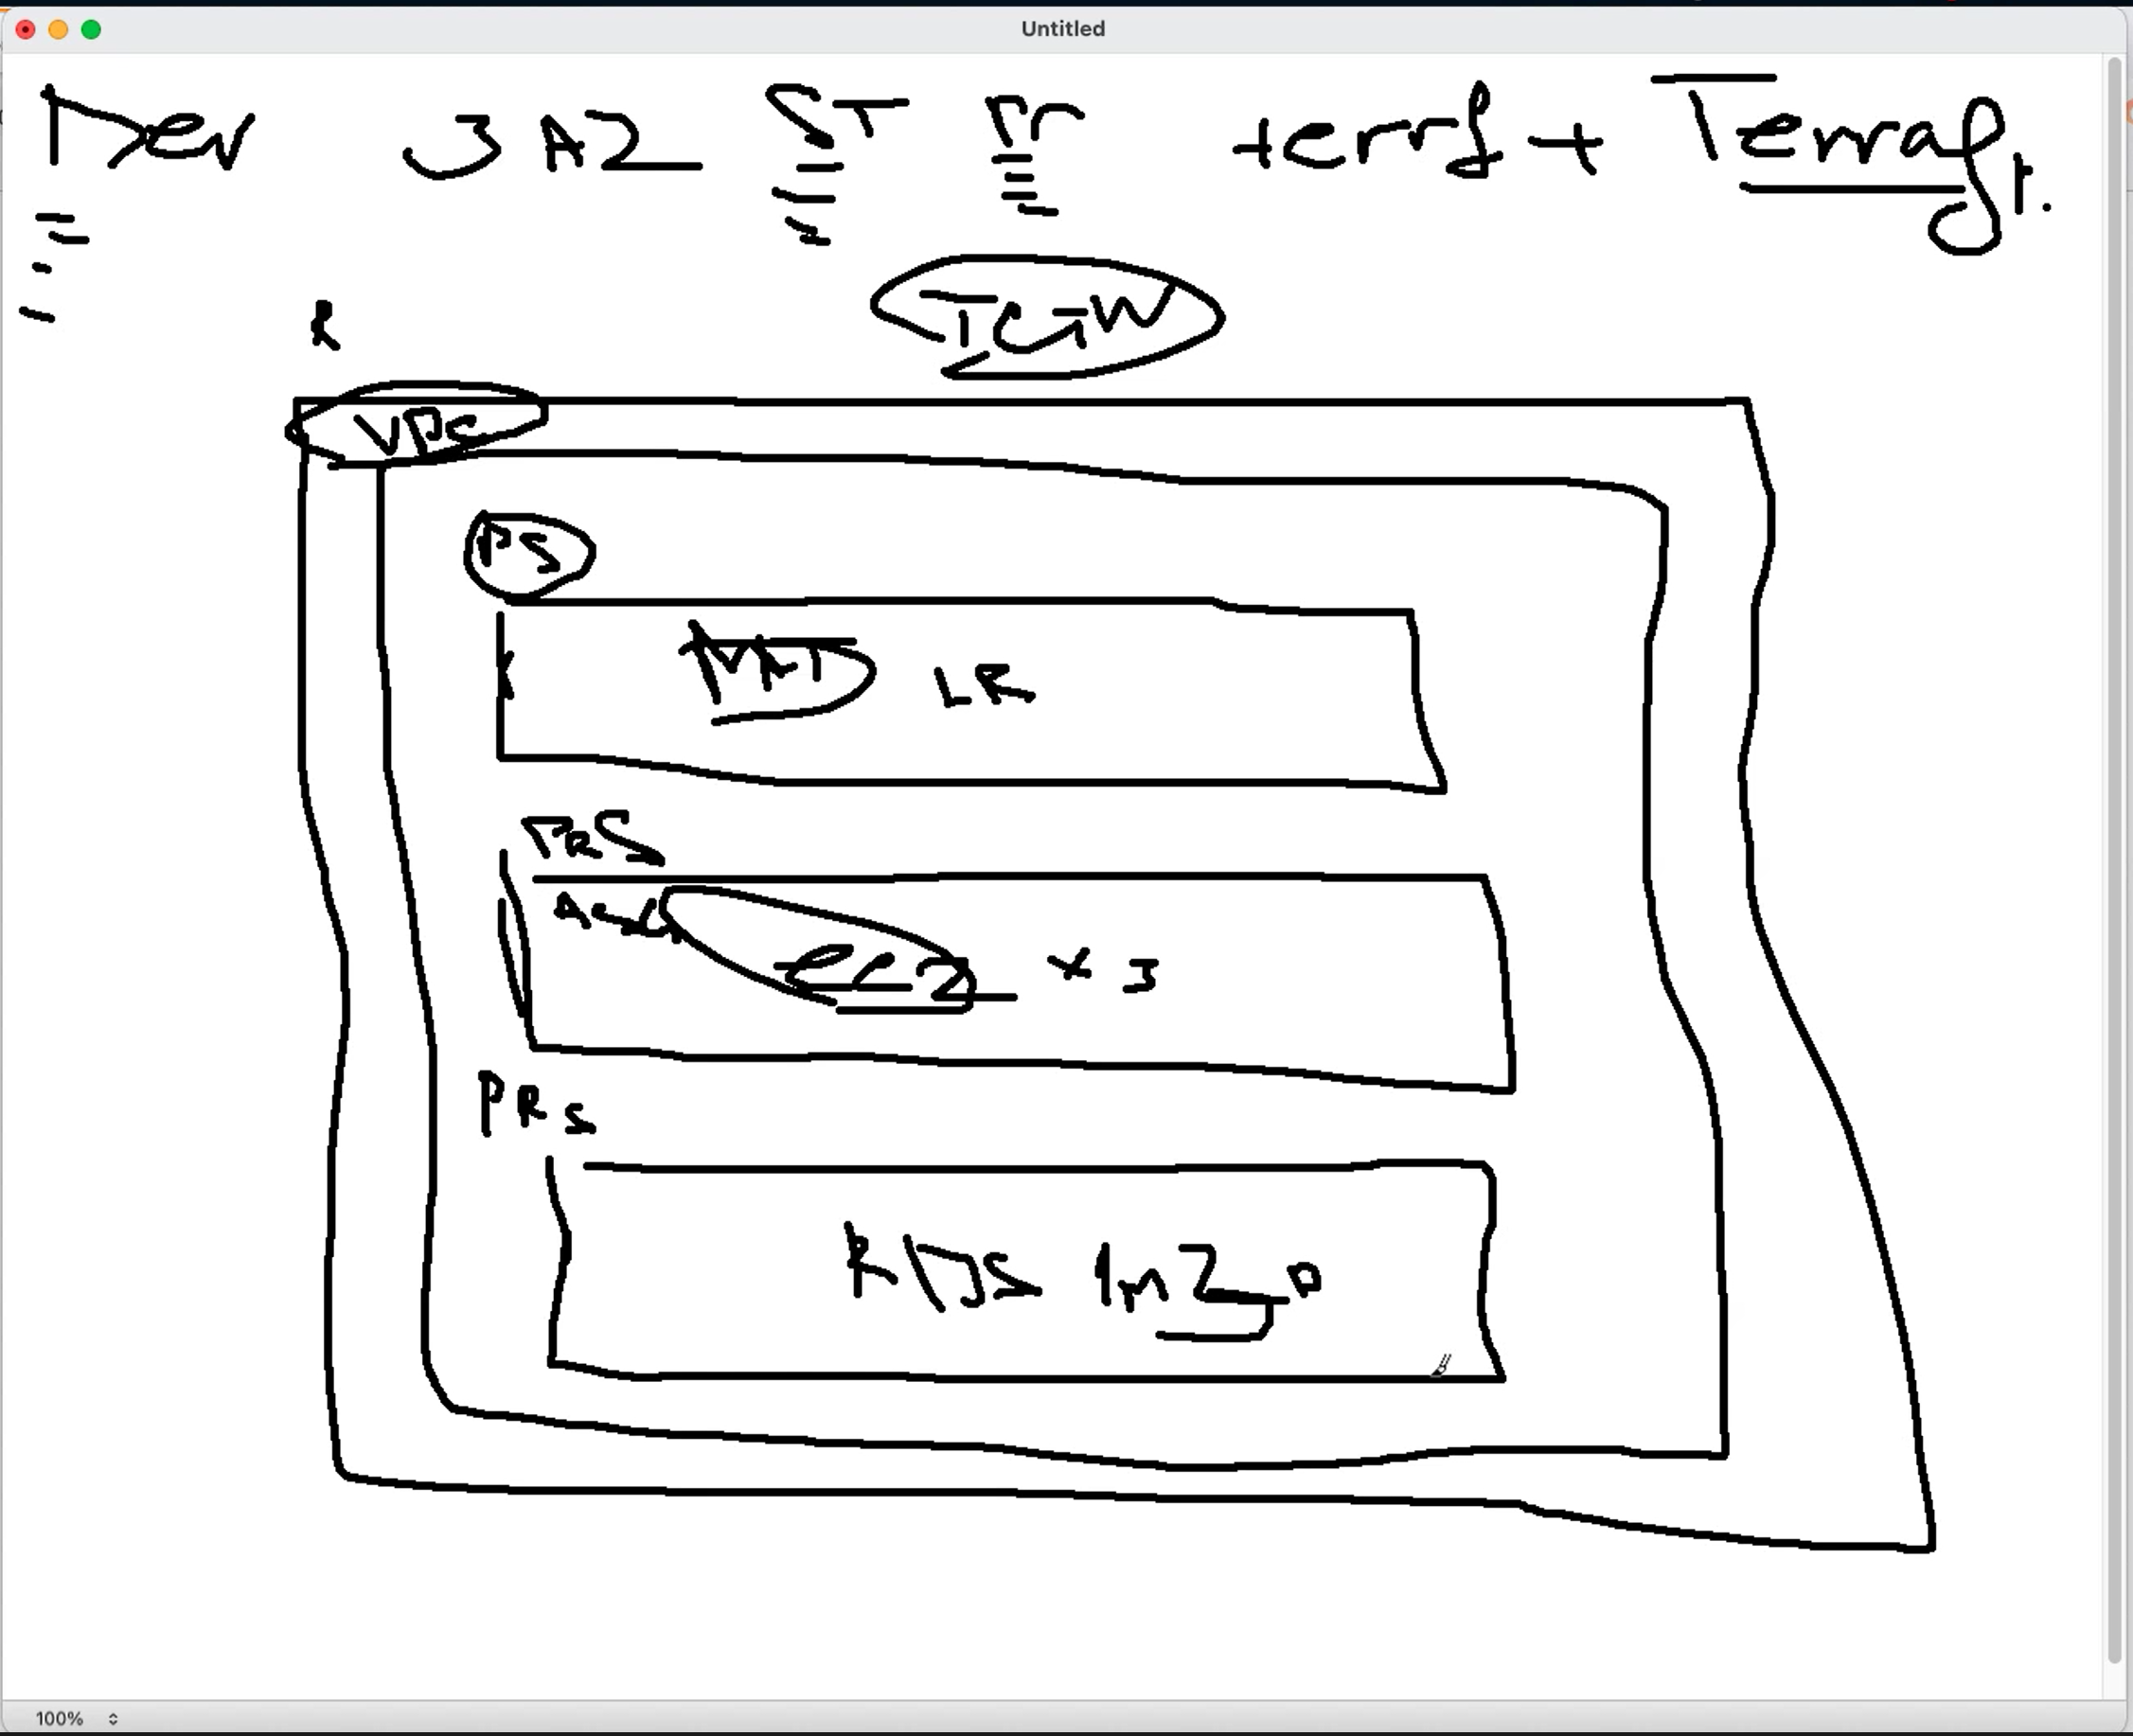 Untitled
Dev 3 AZ ST Pr terrf + Terraft.
IGW
R
VPC
PS
LR
PRS
ASG
ec2 x 3
PRS
RDS
100%